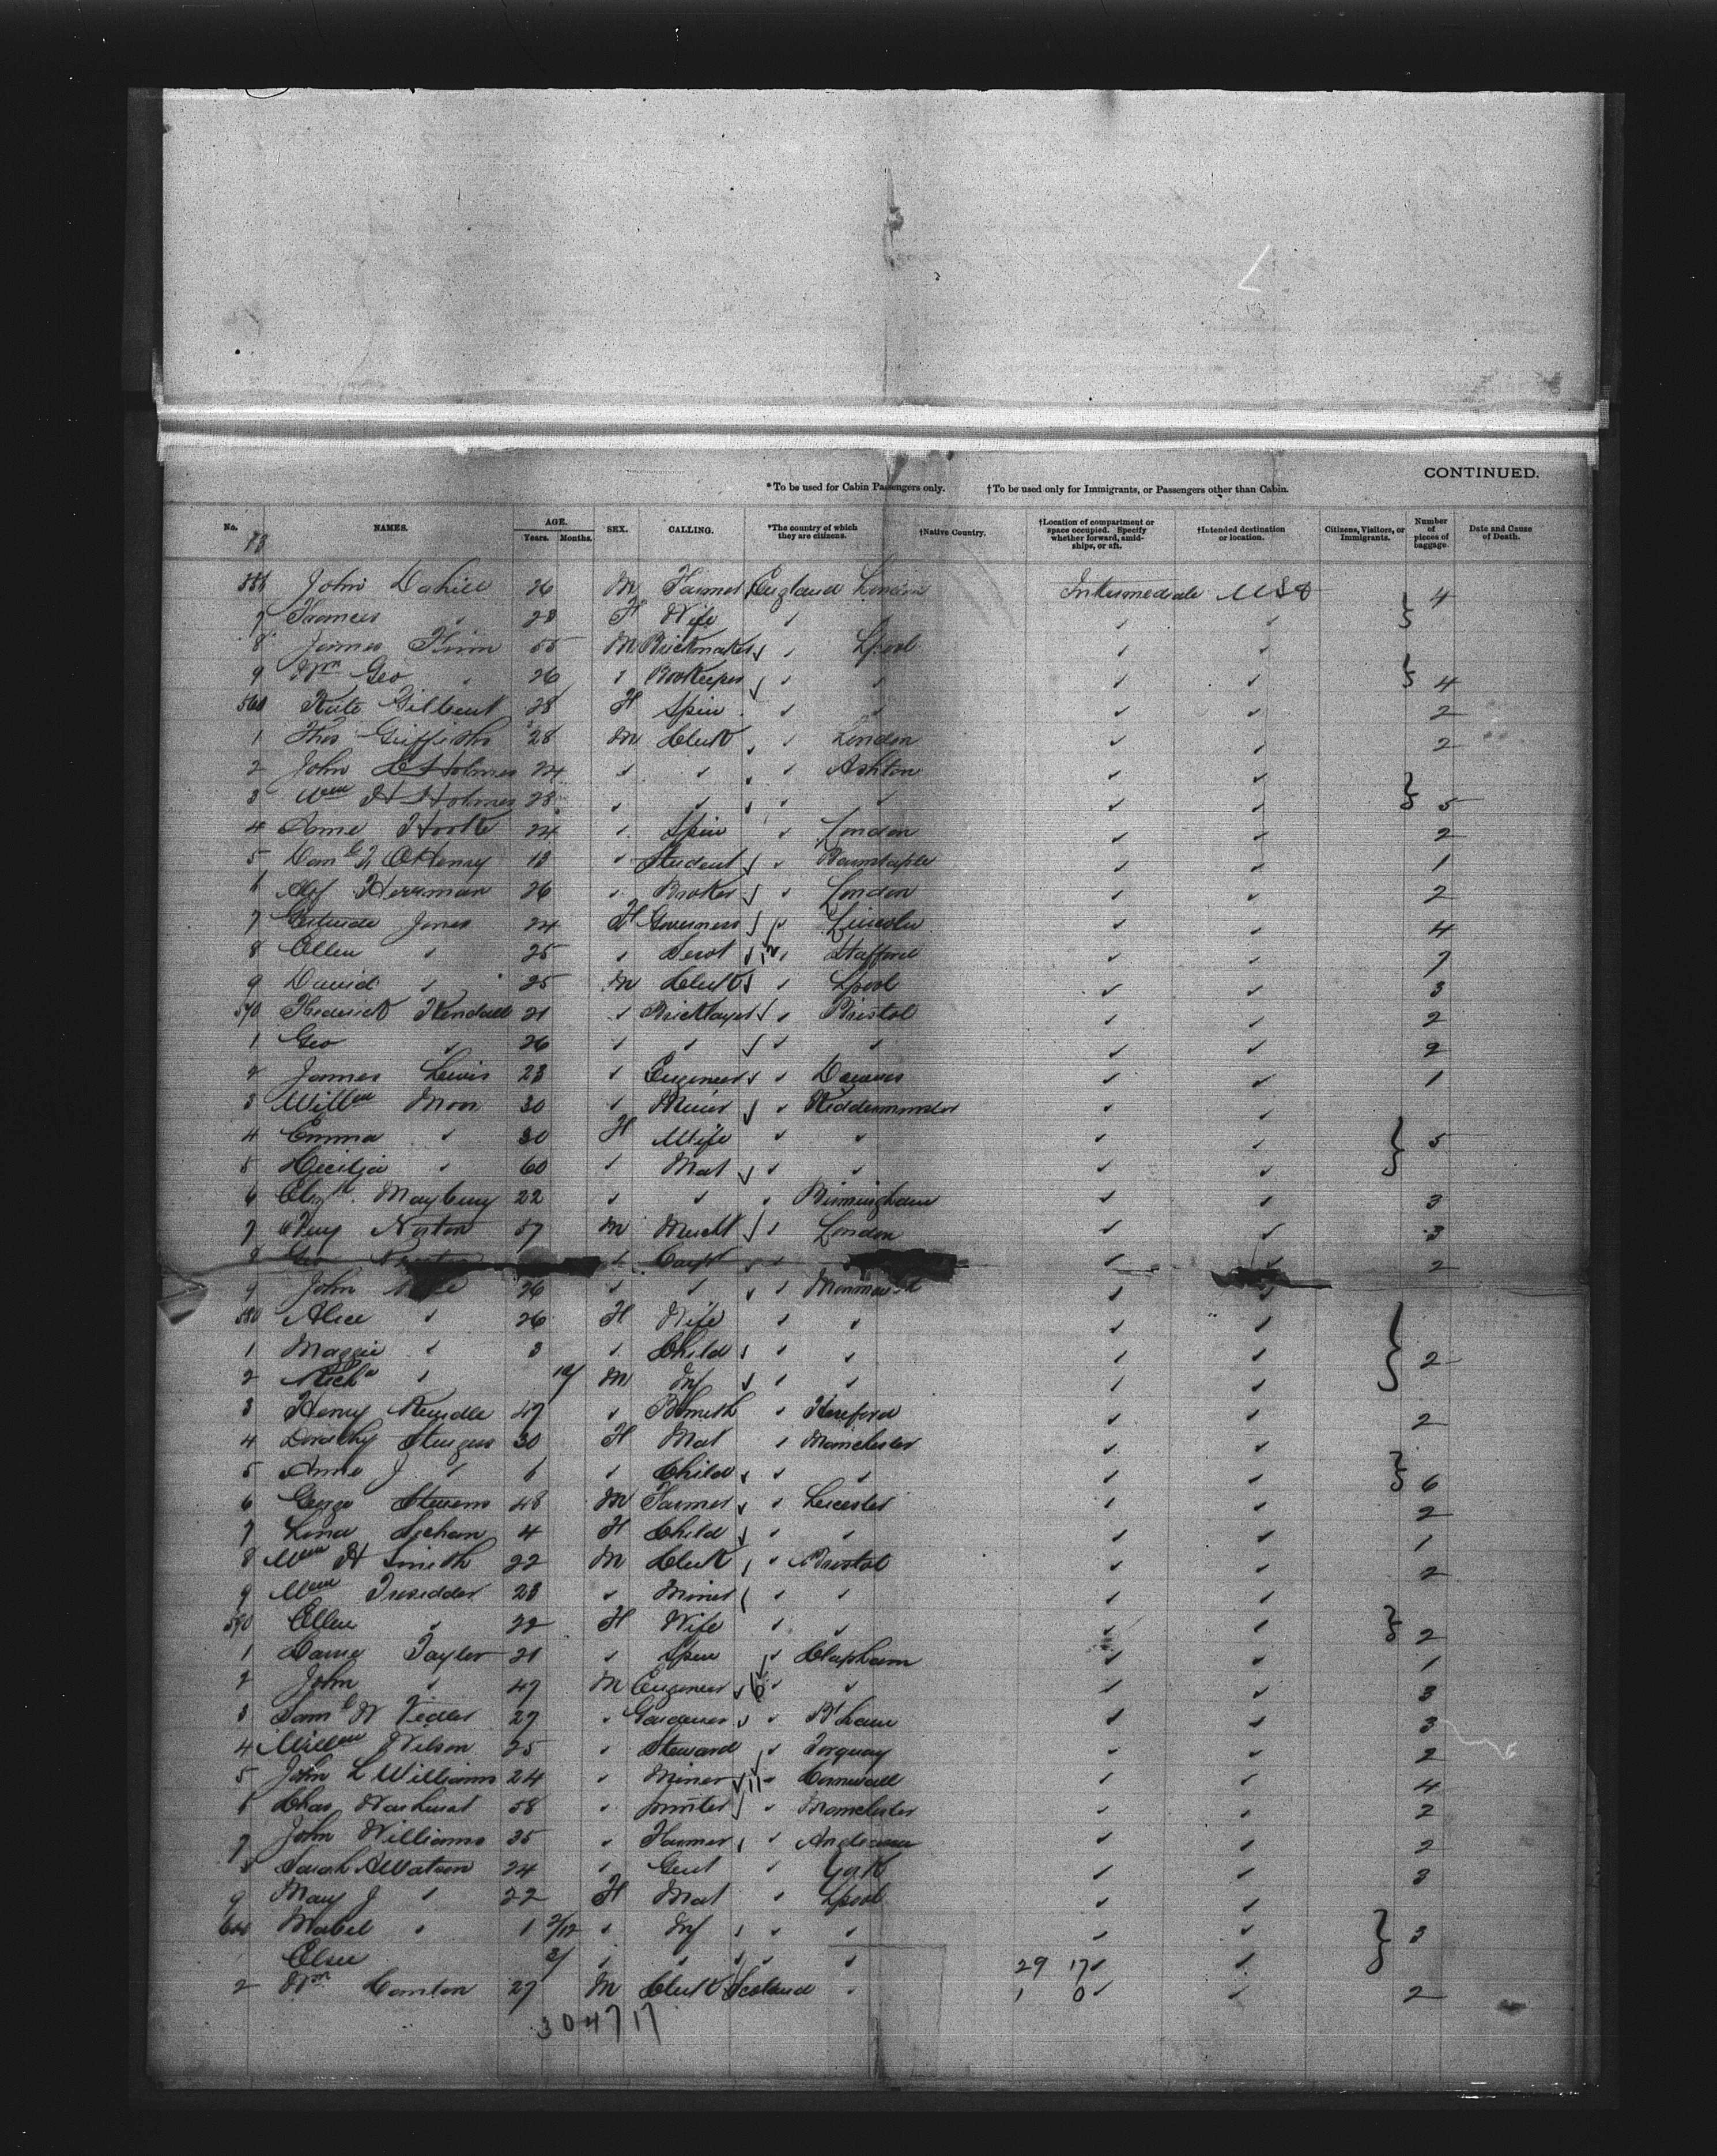 CONTINUED.
*To be used for Cabin Passengers only. †To be used only for Immigrants, or Passengers other than Cabin.
No. NAMES. AGE. Years. Months. SEX. CALLING. *The country of which they are citizens. †Native Country. †Location of compartment or space occupied. Specify whether forward, amidships, or aft. †Intended destination or location. Citizens, Visitors, or Immigrants. Number of pieces of baggage. Date and Cause of Death.
John Dahill 26 M Farmer England London Intermediate USA 4
7 Frances " 28 F Wife
8 James Finn 55 M Brickmaker Lpool
9 Wm Geo " 26 Bookeeper 4
560 Kate Gilbert 28 F Spin 2
1 Thos Griffiths 28 M Clerk London 2
2 John Holmes 24 Ashton
3 Wm H Holmes 28 5
4 Anne 24 Spin London 2
5 Danl O'Henry 18 Student Barnstaple 1
6 Alf Herrman 26 Broker London 2
7 Gertrude Jones 24 F Governess Lincoln 4
8 Ellen " 25 Servt Stafford 7
9 David " 25 M Clerk Lpool 3
570 Frederick Kendall 21 Bricklayer Bristol 2
1 Geo " 26 2
2 James Lewis 23 Engineer 1
3 Willm Moor 30 Kidderminster
4 Emma " 30 F Wife 5
5 Cecilia " 60 Mat
6 Elizth Maybury 22 Birmingham 3
7 Norton 57 M Mercht London 3
8 Geo Carpt 2
9 John 26 Monmouth
580 Alice " 26 F Wife
1 Maggie " 3 Child 2
2 Richd " 10/ M Inf
3 Henry 47 Bsmith Hereford 2
4 Dorothy Sturgess 30 F Mat Manchester
5 Anne J " 6 Child 6
6 George Stevens 48 M Farmer Leicester 2
7 Lena 4 F Child 1
8 Wm H Smith 22 M Clerk Bristol 2
9 Wm Tresidder 28 Miner
590 Ellen " 22 F Wife 2
1 Carrie Taylor 21 Spin Clapham 1
2 John " 47 M Engineer 3
3 Saml W Vedler 27 Gardener B'ham 3
4 Willm Wilson 25 Steward Torquay 2
5 John L Williams 24 Miner 11 Cornwall 4
6 Chas Warhurst 58 Printer Manchester 2
7 John Williams 35 Farmer 2
8 Sarah A Watson 24 Gent York 3
9 Mary J " 22 F Mat Lpool
600 Mabel " 1 2/12 Inf 3
Elsie 3/ 29 17
2 Wm 27 M Clerk Scotland 1 0 2
304717